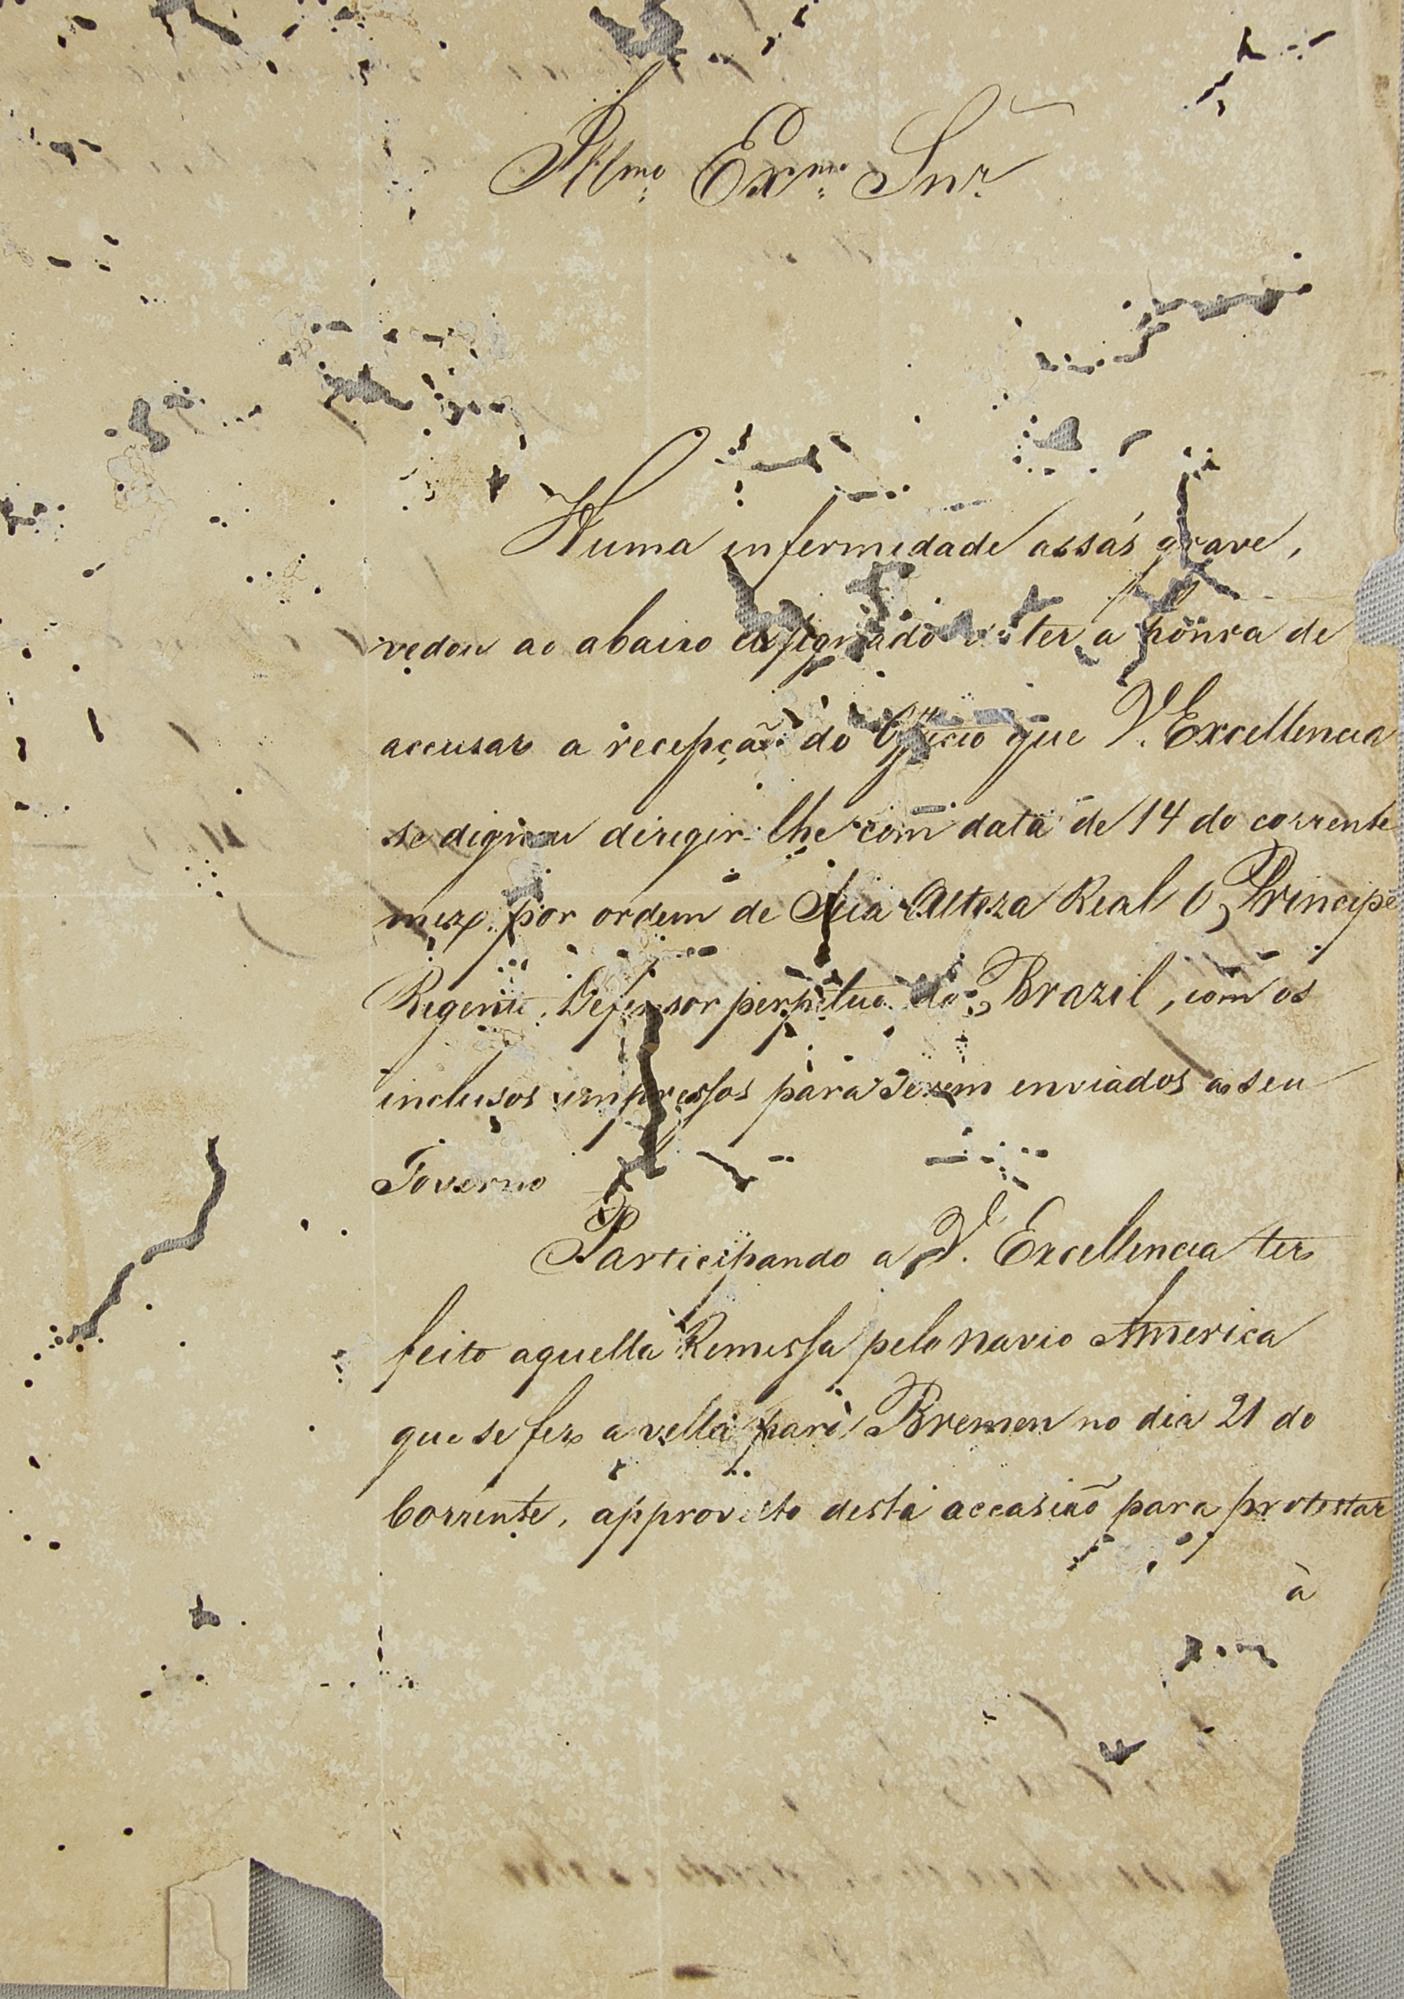 Illmo. Exmo. Snr.
Huma infermidade assás grave,
vedou ao abaixo assignado o ter a honra de
accusar a recepção do Officio que V. Excellencia
se dignou dirigir-lhe com data de 14 do corrente
mez, por ordem de Sua Alteza Real O Principe
Regente, Defensor perpetuo do Brazil, com os
inclusos impressos para serem enviados ao seu
Governo
Participando a V. Excellencia ter
feito aquella Remessa pelo navio America
que se fez a vella para Bremen no dia 21 do
Corrente, approveito desta accasião para protestar
à